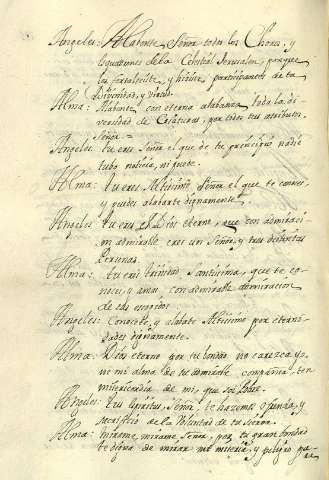 Angeles: Alabente Señor todos los Choros, y
esquadrones de la Celestial Jerusalen, porque
los fortaleciste, y hiciste participantes de tu
divinidad, y virtud.
Alma: Alabente con eterna alabanza toda la di-
versidad de Criaturas, por todos tus atributos,
Señor =
Angeles: tu eres Señor el que de tu principio nadie
tubo noticia, ni puede.
Alma: tu eres Altissimo Señor el que te conoces,
y puedes alabarte dignamente.
Angeles: tu eres Dios eterno, que con admiracion
admirable eres un Señor, y tres distintas
Personas.
Alma: tu eres trinidad Santissima, que te co-
noces, y amas con admirable admiracion
de tus escogidos.
Angeles: Conocete, y alabate Altissimo por eterni-
dades dignamente.
Alma: Dios eterno por tu bondad no carezca yo,
ni mi alma de tu admirable compañia, ten
misericordia de mi, que soi Pobre.
Angeles: tus espiritus, Señor, te hazemos ofrenda, y
sacrificio de la Voluntad de tu sierva.
Alma: mirame, mirame Señor, por tu gran bondad
te digna de mirar mi miseria, y peligro pa-